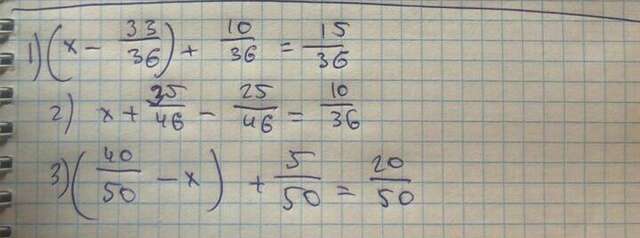 1) (x - 33/36) + 10/36 = 15/36
2) x + 35/46 - 25/46 = 10/36
3) (40/50 - x) + 5/50 = 20/50